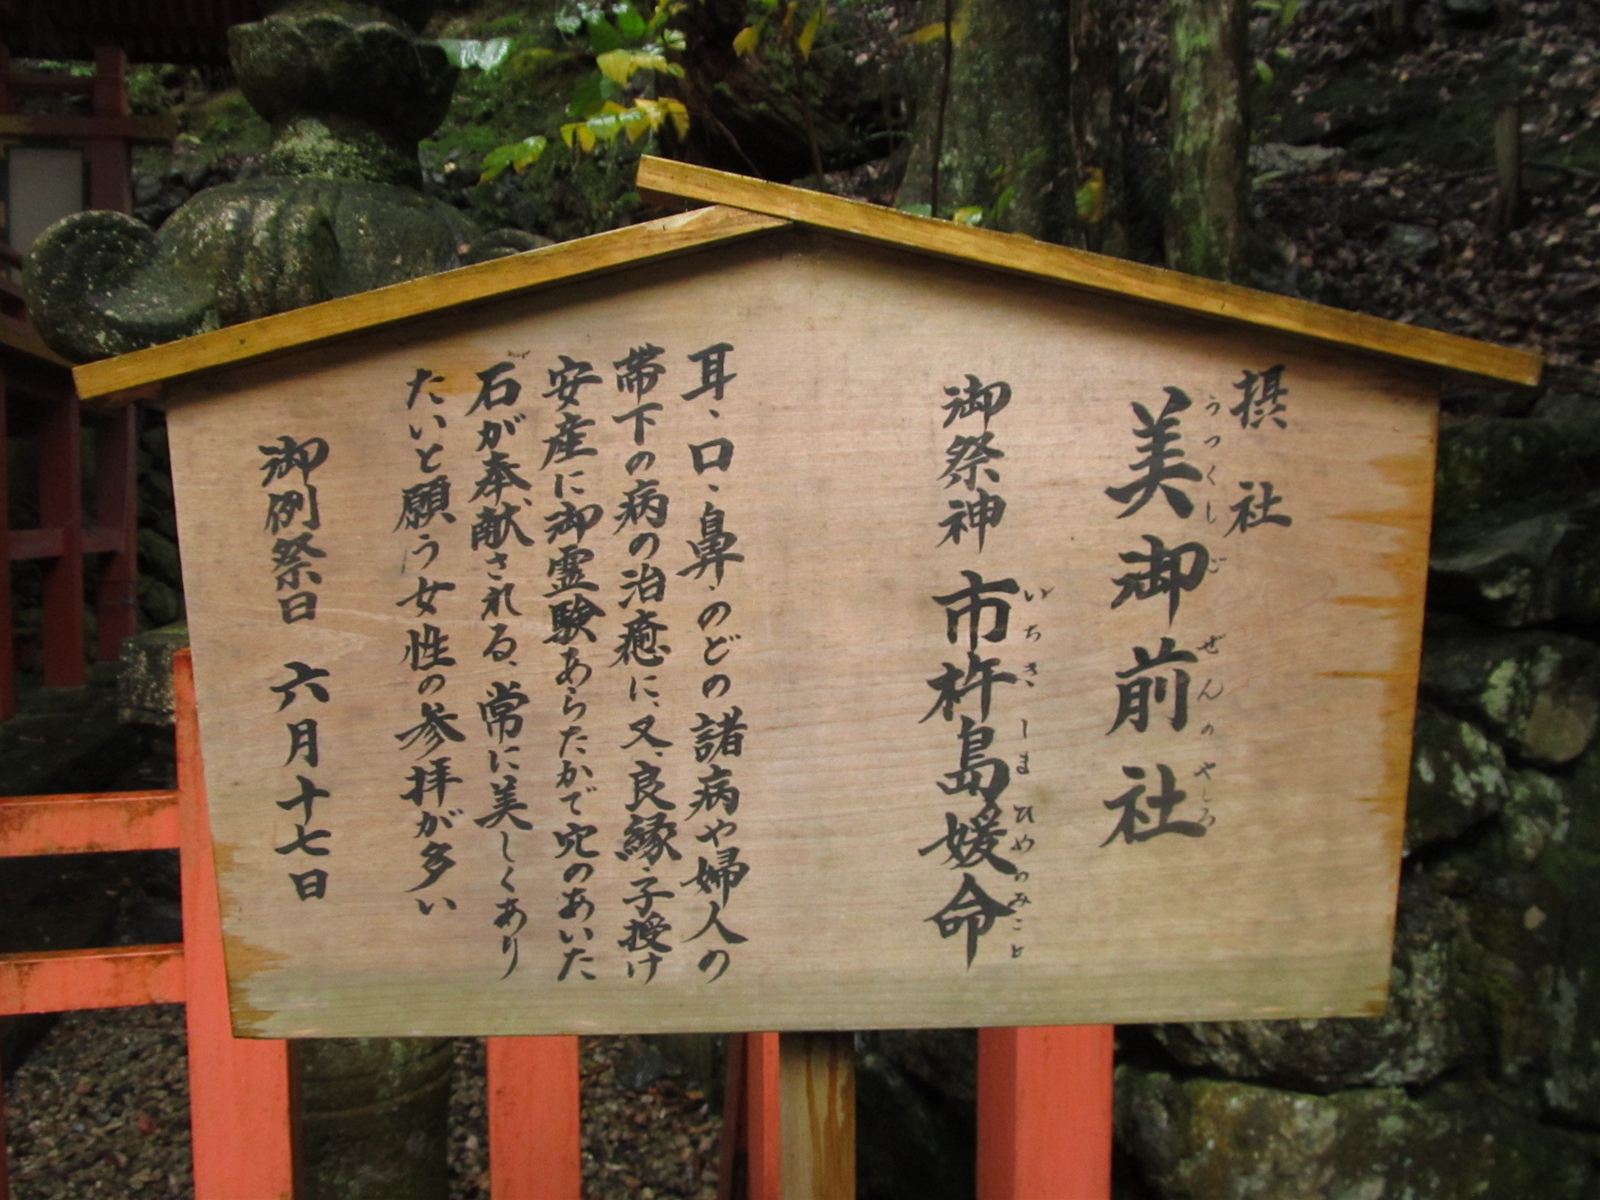 摂社
美御前社
うつくしごぜんのやしろ
御祭神 市杵島媛命
いちきしまひめのみこと
耳、口、鼻、のどの諸病や婦人の
帯下の病の治癒に、又、良縁、子授け
安産に御霊験あらたかで穴のあいた
石が奉献される、常に美しくあり
たいと願う女性の参拝が多い
御例祭日 六月十七日